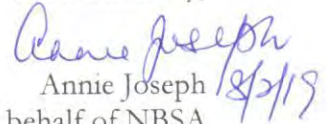 Annie Joseph
Annie Joseph 8/2/19
behalf of NBSA